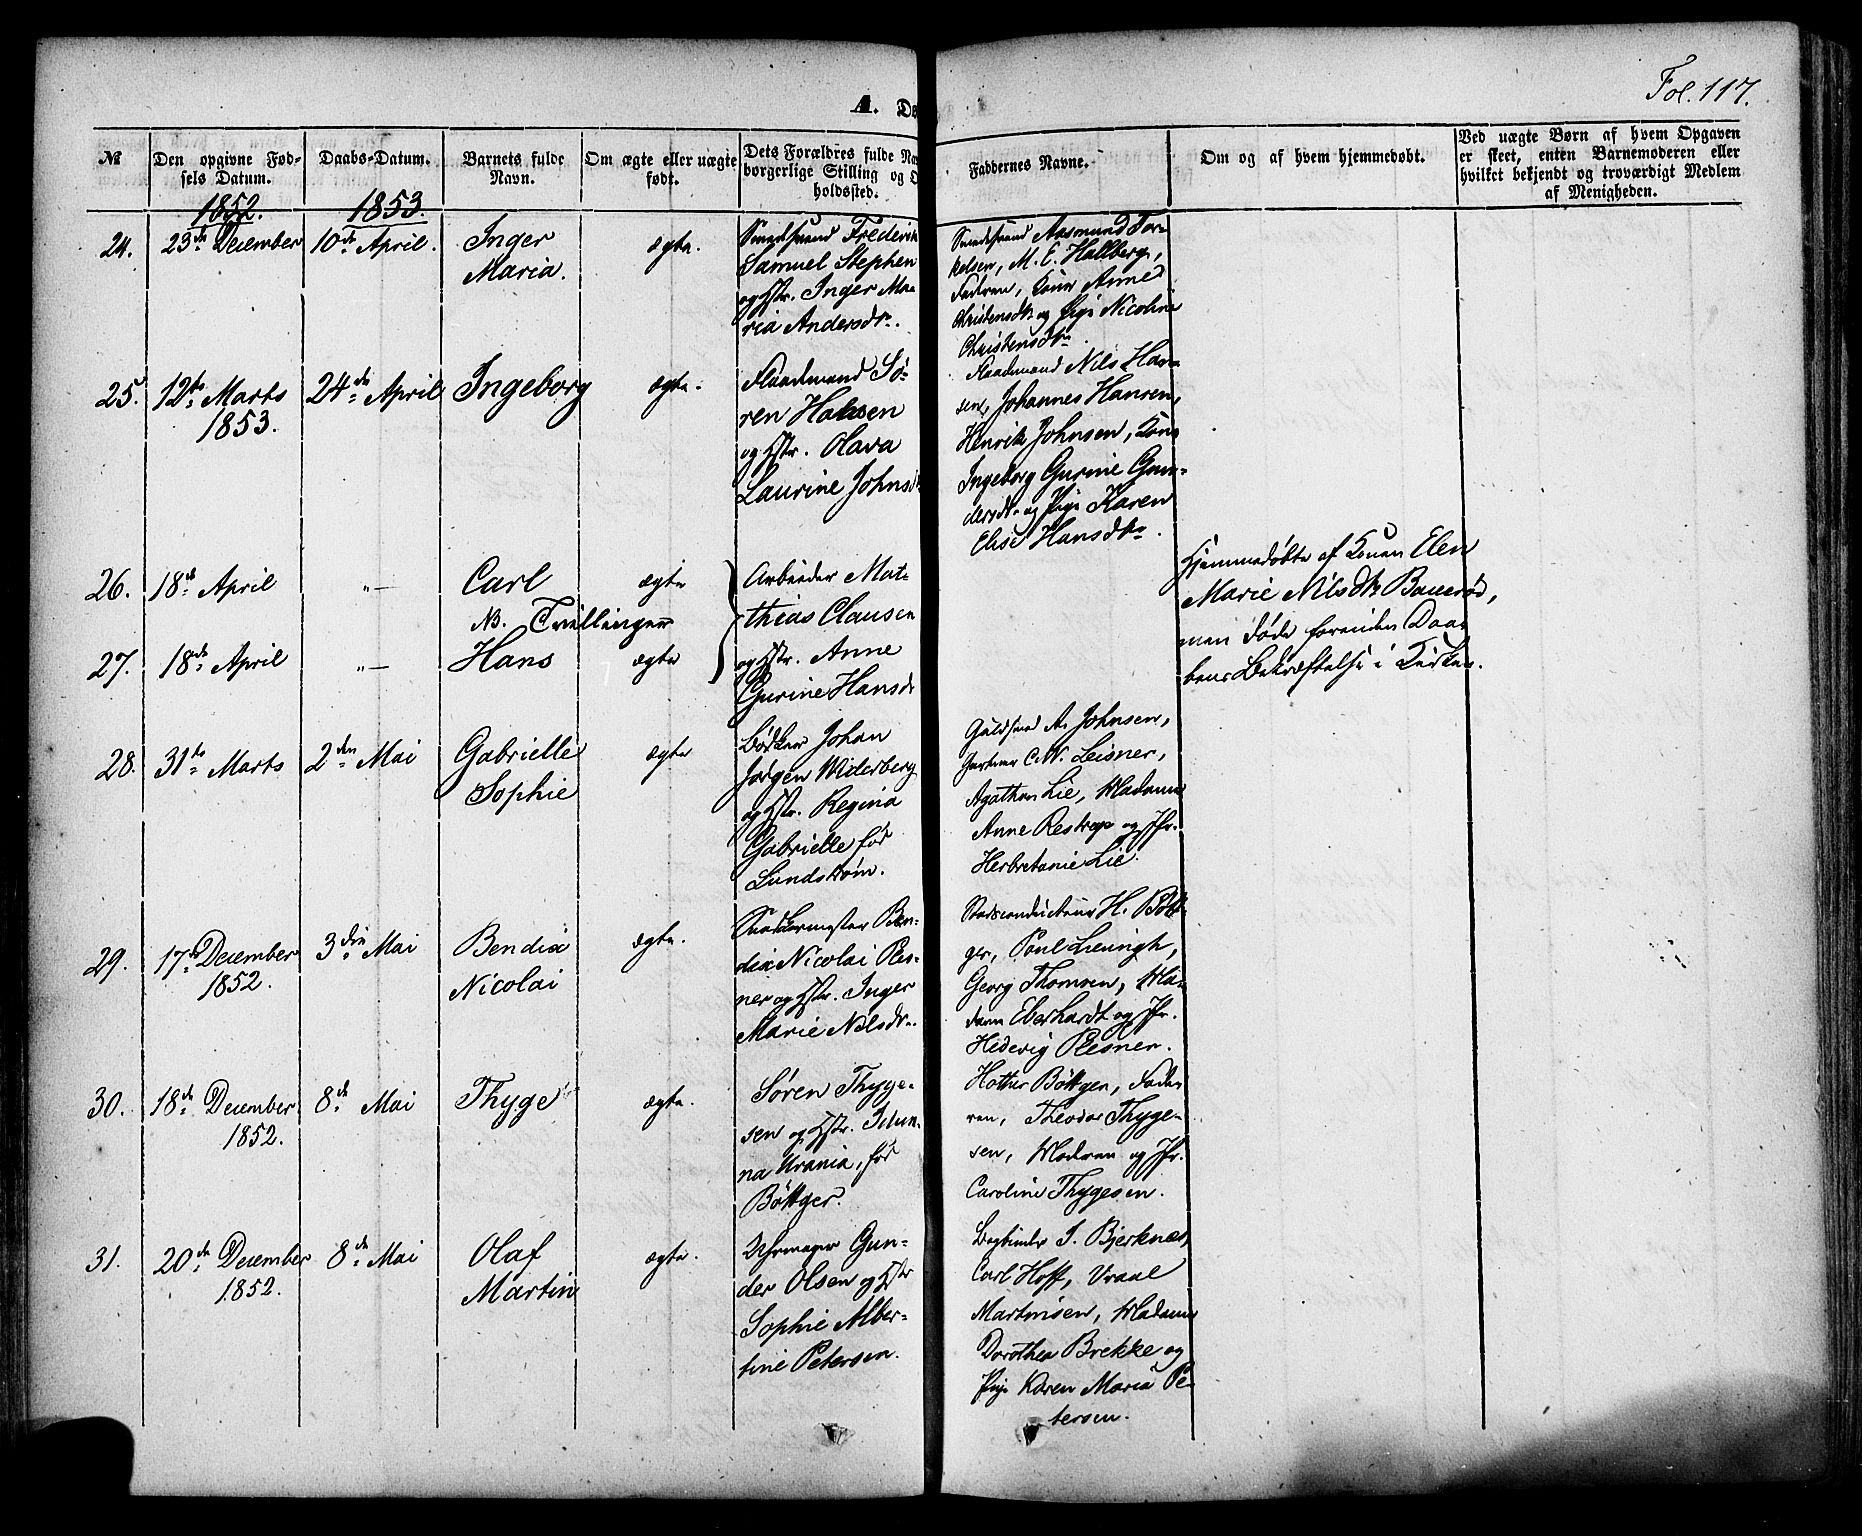 Fol. 117.
A. Dø
No
Den opgivne Fød-
sels Datum.
Daabs-Datum.
Barnets fulde
Navn.
Om ægte eller uægte
født.
Dets Forældres fulde Na
borgerlige Stilling og O
holdssted.
Faddernes Navne.
Om og af hvem hjemmedøbt.
Ved uægte Børn af hvem Opgaven
er skeet, enten Barnemoderen eller
hvilket bekjendt og troværdigt Medlem
af Menigheden.
1852.
1853.
24.
23de December
10de April.
Inger
Maria.
ægte.
Frederik
Samuel Stephen
og Hstr. Inger Ma-
ria Andersdr.
Aasmund Tor-
kelsen, M. E. Hallberg,
Fadren, Kone Anne
Christensdtr og Pige Nicoline
Christensdtr.
25.
12te Marts
1853.
24de April
Ingeborg
ægte.
Sø-
ren Hansen
og Hstr. Olava
Laurine Johnsd
Nils Han-
sen, Johannes Hansen,
Henrik Johnsen, Kone
Ingeborg Gurine Gun-
dersdtr og Pige Karen
Elise Hansdtr.
26.
18de April
"—
Carl
ægte
NB. Tvillinger
27.
18de April
"—
Hans
ægte
Arbeider Mat-
thias Clausen
og Hstr. Anne
Gurine Hansd
Hjemmedøbte af Konen Elen
Marie Nilsdtr
men døde forinden Daa-
bens Bekræftelse i Kirken.
28.
31te Marts
2den Mai
Gabrielle
Sophie
ægte
Bødker Johan
Jørgen Widerberg
og Hstr. Regina
Gabrielle før
Lundstrøm.
Guldsmed A. Johnsen,
Gartner C. W. Leisner,
Agathon Lie, Madame
Anne Restrup og Jfr.
Herbretanie Lie.
29.
17de December
1852.
3die Mai
Bendix
Nicolai
ægte.
Ben-
dix Nicolai Ples-
ner og Hstr. Inger
Marie Nilsdr.
Stadsconducteur H. Bött-
ger, Poul
Georg Thomsen, Ma-
dam Eberhardt og Jfr.
Hedevig Plesner.
30.
18de December
1852.
8de Mai
Thyge
ægte.
Søren Thyge-
sen og Hstr. Idun-
na Urania, før
Böttger.
Hother Böttger, Fade-
ren, Theodor Thyge-
sen, Madam og Jfr.
Caroline Thygesen.
31.
20de December
1852.
8de Mai
Olaf
Martin
ægte.
Uhrmager Gun-
der Olsen og Hstr
Sophie Alber-
tine Petersen.
Bogbinder J. Bjerknes,
Carl Hoff, Vraal
Martinsen, Madame
Dorothea Brekke og
Pige Karen Maria Pe-
tersen.